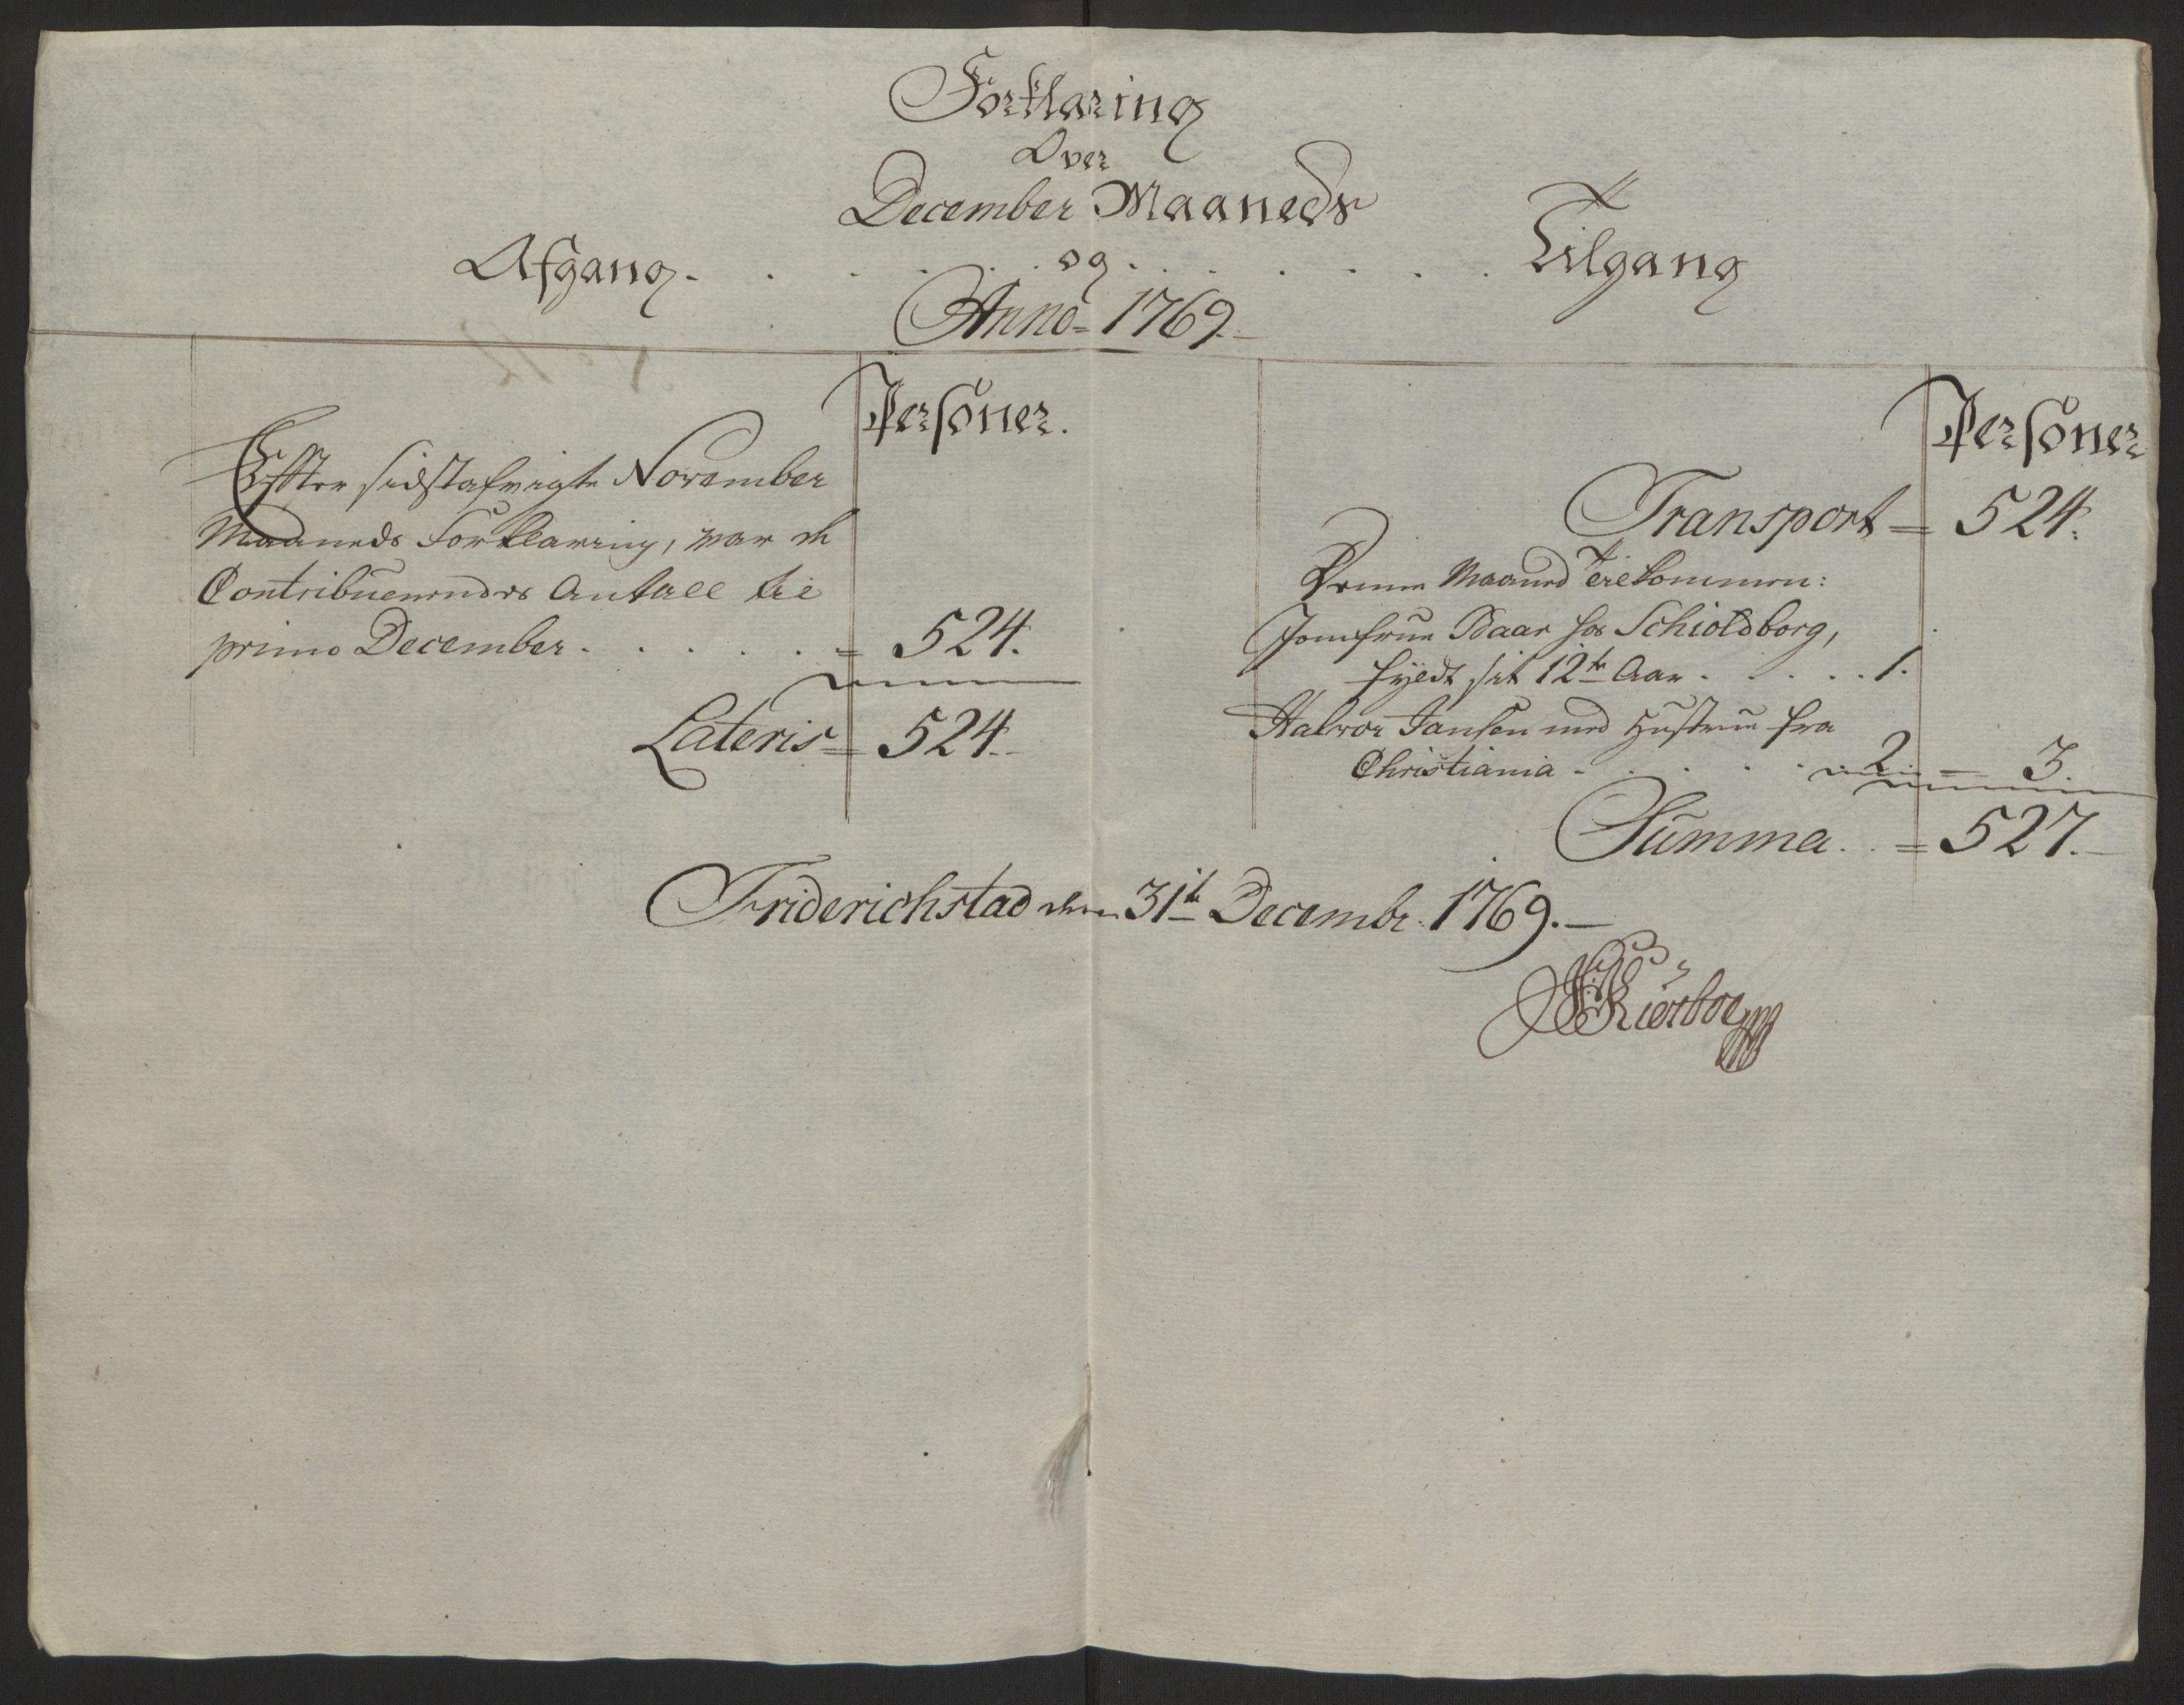 Forklaring
Over
December Maaneds
Afgang . . . . . . og . . . . . . Tilgang
Anno = 1769.
Personer.
Effter sidstafvigte November
Maaneds Forklaring, var de
Contribuerendes Antall til
primo December . . . . . = 524.
Lateris = 524.
Personer
Transport = 524.
Denne Maaned tilkommen:
Jomfrue Baar hos Schioldborg,
fyldt sit 12te Aar . . . . . 1.
Halvor Jansen med Hustrue fra
Christiania . . . . . 2 = 3.
Summa . . = 527.
Friderichstad den 31te Decembr. 1769.
Kierboe